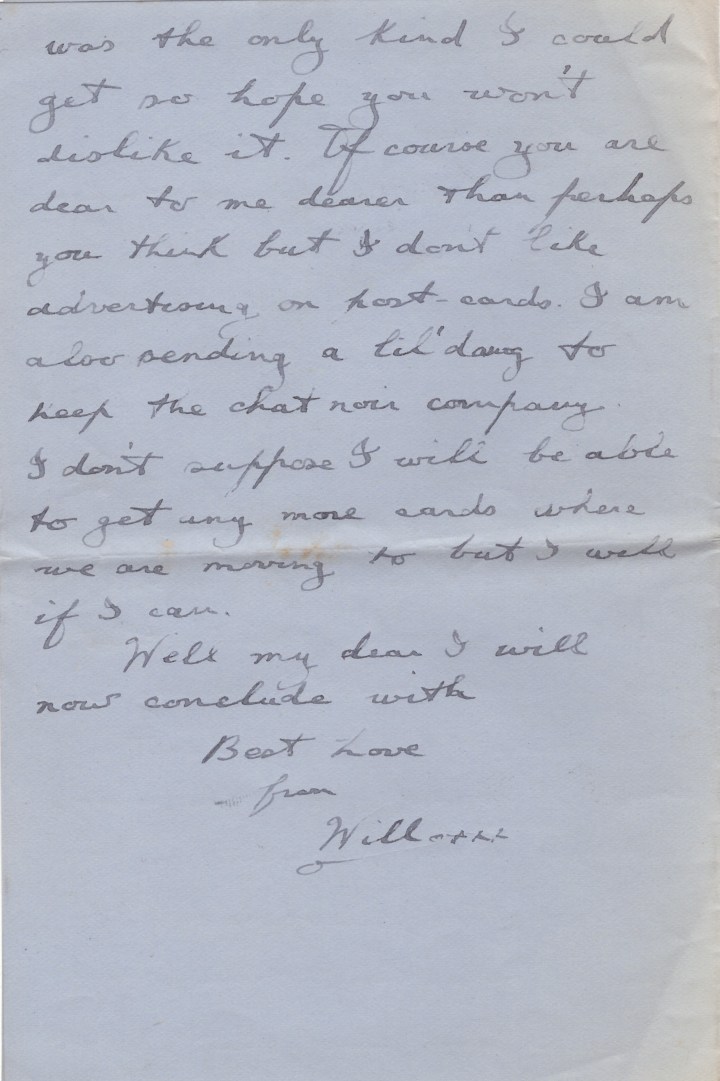 was the only kind I could
get so hope you won't
dislike it. Of course you are
dear to me dearer than perhaps
you think but I don't like
advertising on post-cards. I am
also sending a lil' dawg to
keep the chat noir company.
I don't suppose I will be able
to get any more cards where
we are moving to but I will
if I can.
Well my dear I will
now conclude with
Best Love
from
Will xxxx